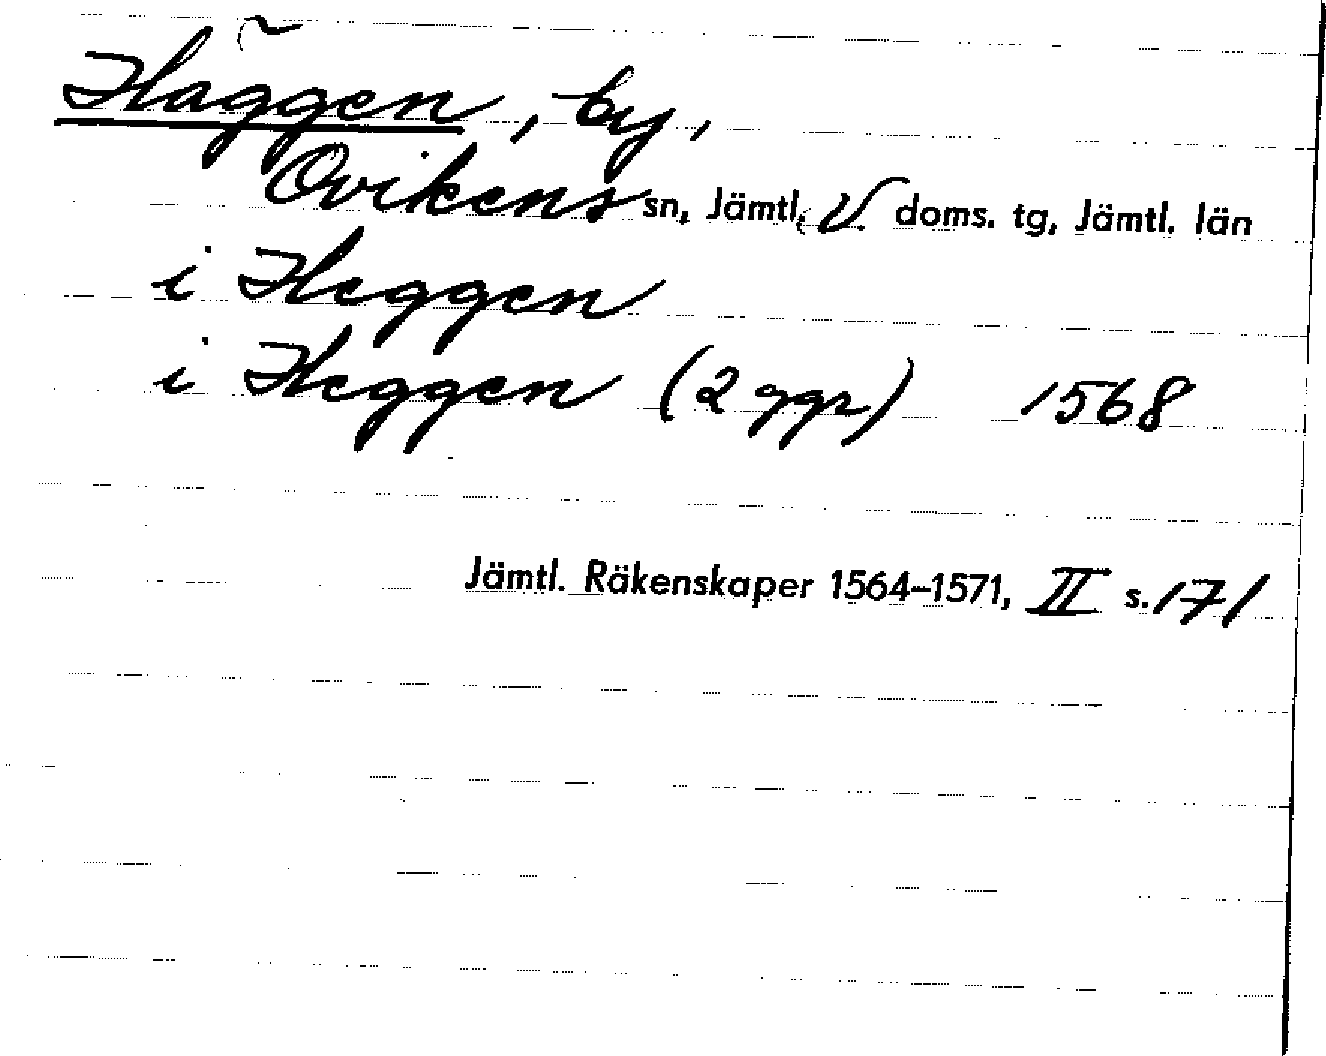 Häggen, by,
Ovikens sn, Jämtl. V. doms. tg, Jämtl. län
i Heggen
i Heggen (2 ggr) 1568
Jämtl. Räkenskaper 1564–1571, II s. 171